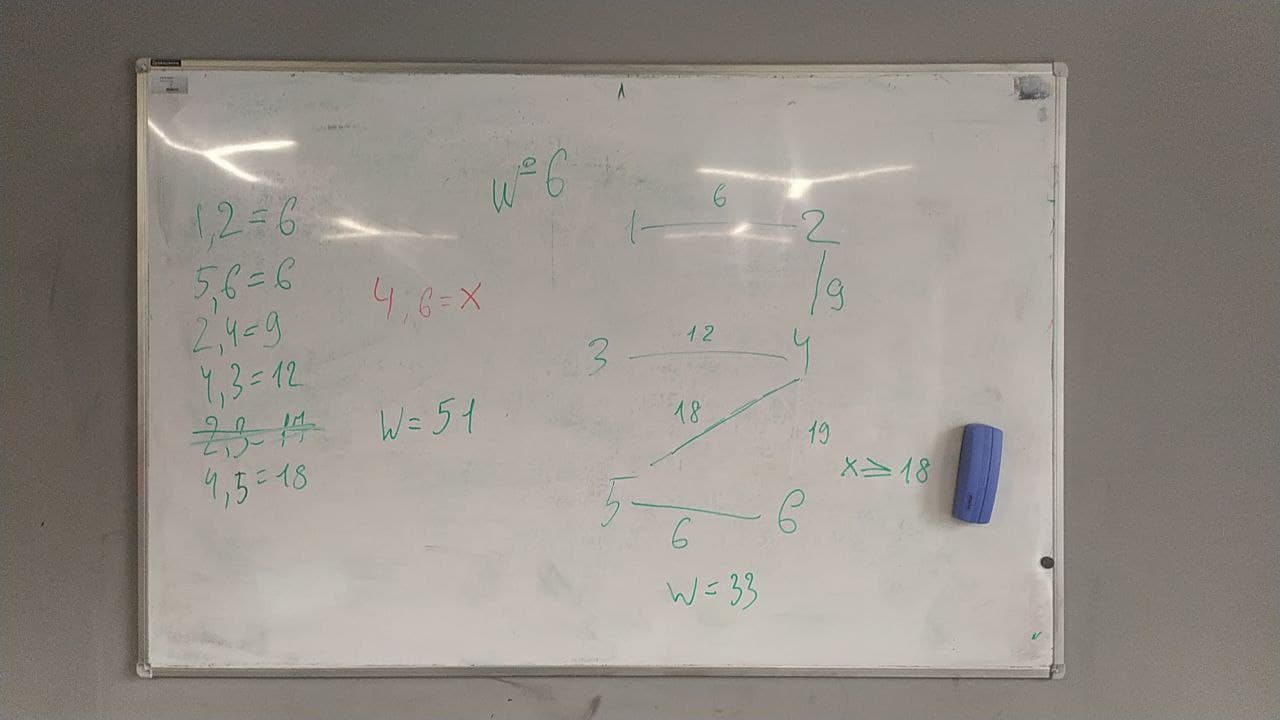 №6
1,2=6
5,6=6
2,4=9
4,3=12
4,5=18
4,6=x
W=51
1 6 2
9
3 12 4
18
19
x≥18
5 6 6
W=33